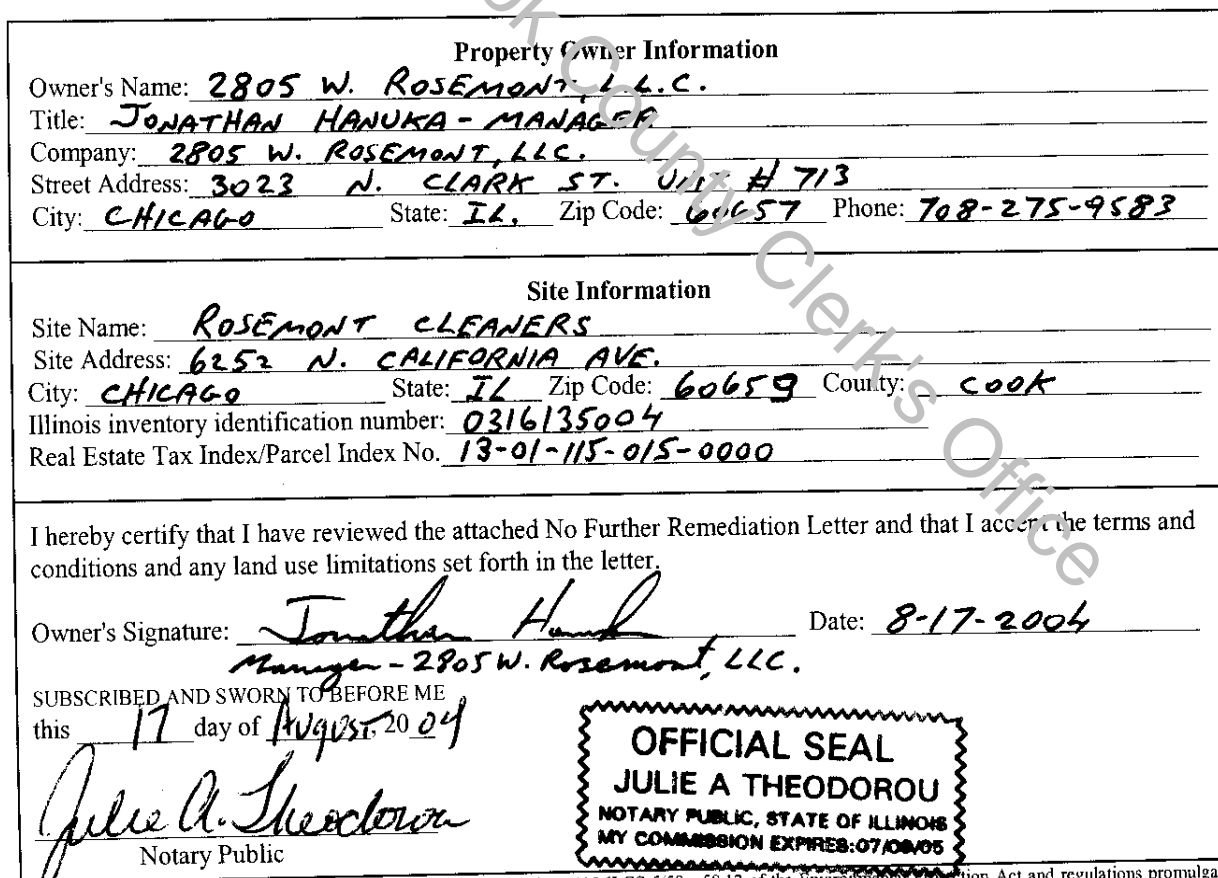 Property Owner Information
Owner's Name: 2805 W. ROSEMONT, L.L.C.
Title: JONATHAN HANUKA - MANAGER
Company: 2805 W. ROSEMONT, LLC.
Street Address: 3023 N. CLARK ST. UNIT # 713
City: CHICAGO State: IL. Zip Code: 60657 Phone: 708-275-9583
Site Information
Site Name: ROSEMONT CLEANERS
Site Address: 6252 N. CALIFORNIA AVE.
City: CHICAGO State: IL Zip Code: 60659 County: COOK
Illinois inventory identification number: 0316135004
Real Estate Tax Index/Parcel Index No. 13-01-115-015-0000
I hereby certify that I have reviewed the attached No Further Remediation Letter and that I accept the terms and
conditions and any land use limitations set forth in the letter.
Owner's Signature: Jonathan Hanuka Date: 8-17-2004
Manager - 2805 W. Rosemont, LLC.
SUBSCRIBED AND SWORN TO BEFORE ME
this 17 day of August, 20 04
Julie A. Theodorou
Notary Public
OFFICIAL SEAL
JULIE A THEODOROU
NOTARY PUBLIC, STATE OF ILLINOIS
MY COMMISSION EXPIRES:07/09/05
Act and regulations promulga
ok County Clerk's Office